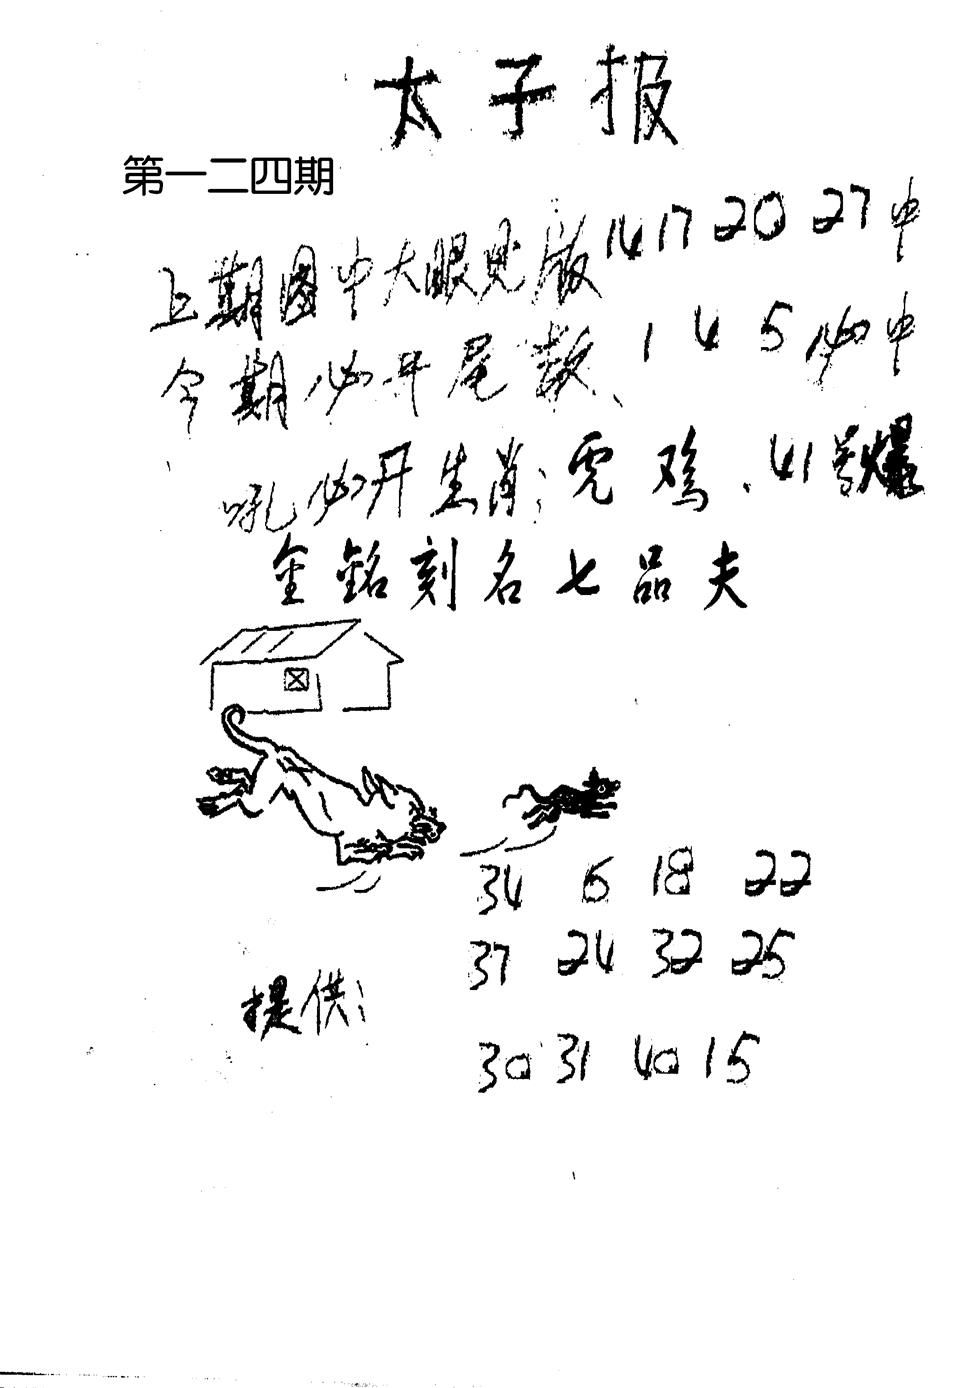 太子报
第一二四期
上期图中大眼见版 14 17 20 27 中
今期必开尾数、1 4 5 必中
吼必开生肖:虎 鸡、41号爆
金銘刻名七品夫
34 6 18 22
37 24 32 25
提供:
30 31 40 15